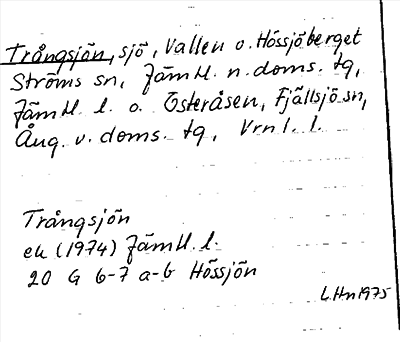 Trångsjön, sjö, Vallen o. Hössjöberget
Ströms sn, Jämtl. n. doms. tg,
Jämtl. l. o. Österåsen, Fjällsjö sn,
Ång. v. doms. tg, Vrnl. l.
Trångsjön
ek (1974) Jämtl. l.
20 G 6-7 a-b Hössjön
L Hn 1975